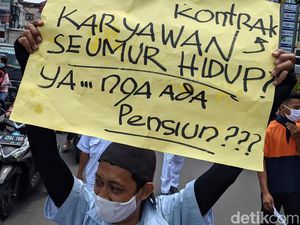 Kontrak
KARYAWAN
SEUMUR HIDUP?
YA... nga ADA
Pensiun???
detikcom